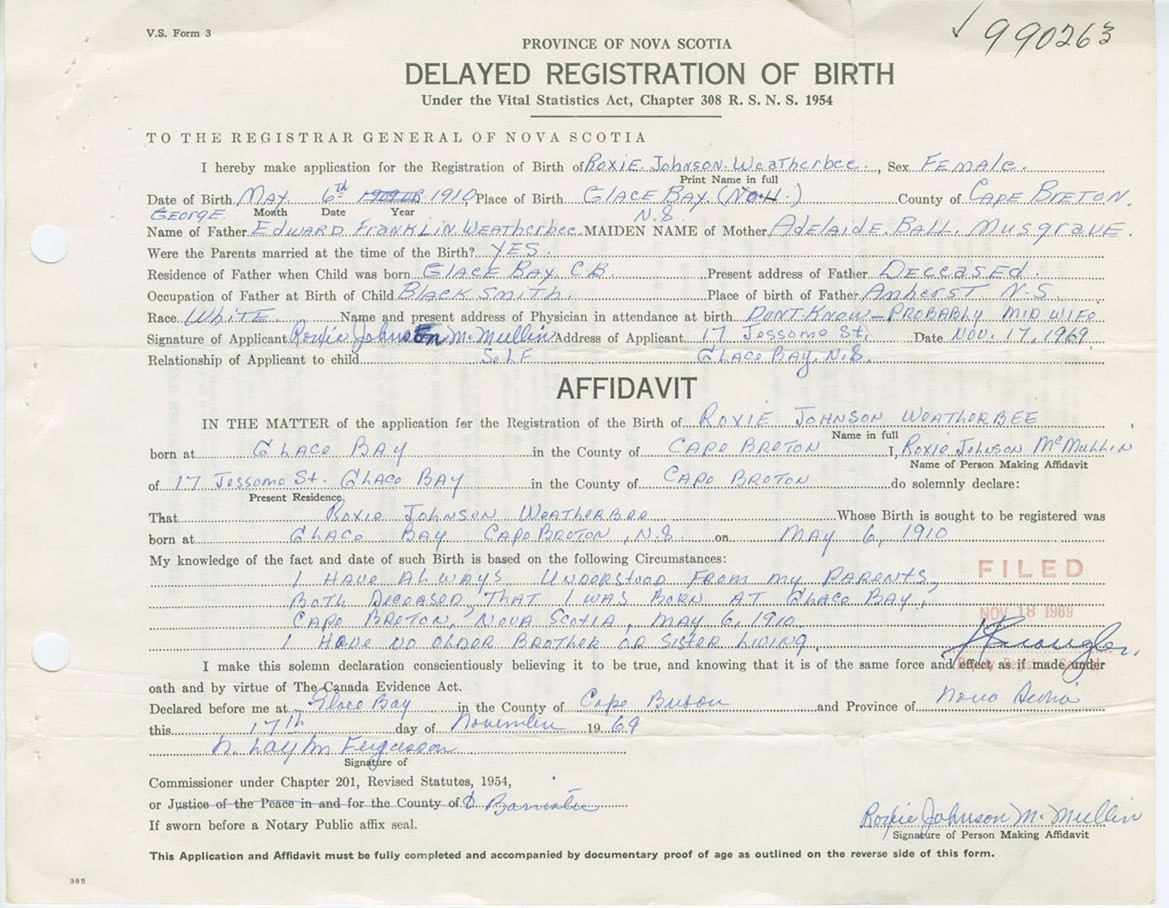 V.S. Form 3
990263
PROVINCE OF NOVA SCOTIA
DELAYED REGISTRATION OF BIRTH
Under the Vital Statistics Act, Chapter 308 R. S. N. S. 1954
TO THE REGISTRAR GENERAL OF NOVA SCOTIA
I hereby make application for the Registration of Birth of Roxie Johnson Weatherbee, Sex Female.
Print Name in full
Date of Birth May 6th 1910 Place of Birth Glace Bay (No. 11.) County of Cape Breton.
George Month Date Year N.S
Name of Father Edward Franklin Weatherbee MAIDEN NAME of Mother Adelaide Ball Musgrave.
Were the Parents married at the time of the Birth? YES.
Residence of Father when Child was born Glace Bay C.B. Present address of Father Deceased.
Occupation of Father at Birth of Child Black Smith. Place of birth of Father Amherst N.S.
Race White Name and present address of Physician in attendance at birth Dont Know – Probably Mid Wife
Signature of Applicant Roxie Johnson McMullin Address of Applicant 17 Jessome St. Date Nov. 17, 1969
Relationship of Applicant to child Self Glace Bay, N.S.
AFFIDAVIT
IN THE MATTER of the application for the Registration of the Birth of Roxie Johnson Weatherbee
Name in full
born at Glace Bay in the County of Cape Breton I, Roxie Johnson McMullin
Name of Person Making Affidavit
of 17 Jessome St. Glace Bay in the County of Cape Breton do solemnly declare:
Present Residence
That Roxie Johnson Weatherbee Whose Birth is sought to be registered was
born at Glace Bay Cape Breton, N.S. on May 6, 1910
My knowledge of the fact and date of such Birth is based on the following Circumstances:
I Have Always Understood From my Parents,
Both Deceased, That I was Born at Glace Bay,
Cape Breton, Nova Scotia, May 6, 1910.
I Have no older Brother or Sister Living.
FILED
NOV 18 1969
I make this solemn declaration conscientiously believing it to be true, and knowing that it is of the same force and effect as if made under
oath and by virtue of The Canada Evidence Act.
Declared before me at Glace Bay in the County of Cape Breton and Province of Nova Scotia
this 17th day of November 1969
Fergusson
Signature of
Commissioner under Chapter 201, Revised Statutes, 1954,
or Justice of the Peace in and for the County of A Barrister
If sworn before a Notary Public affix seal.
Roxie Johnson McMullin
Signature of Person Making Affidavit
This Application and Affidavit must be fully completed and accompanied by documentary proof of age as outlined on the reverse side of this form.
385